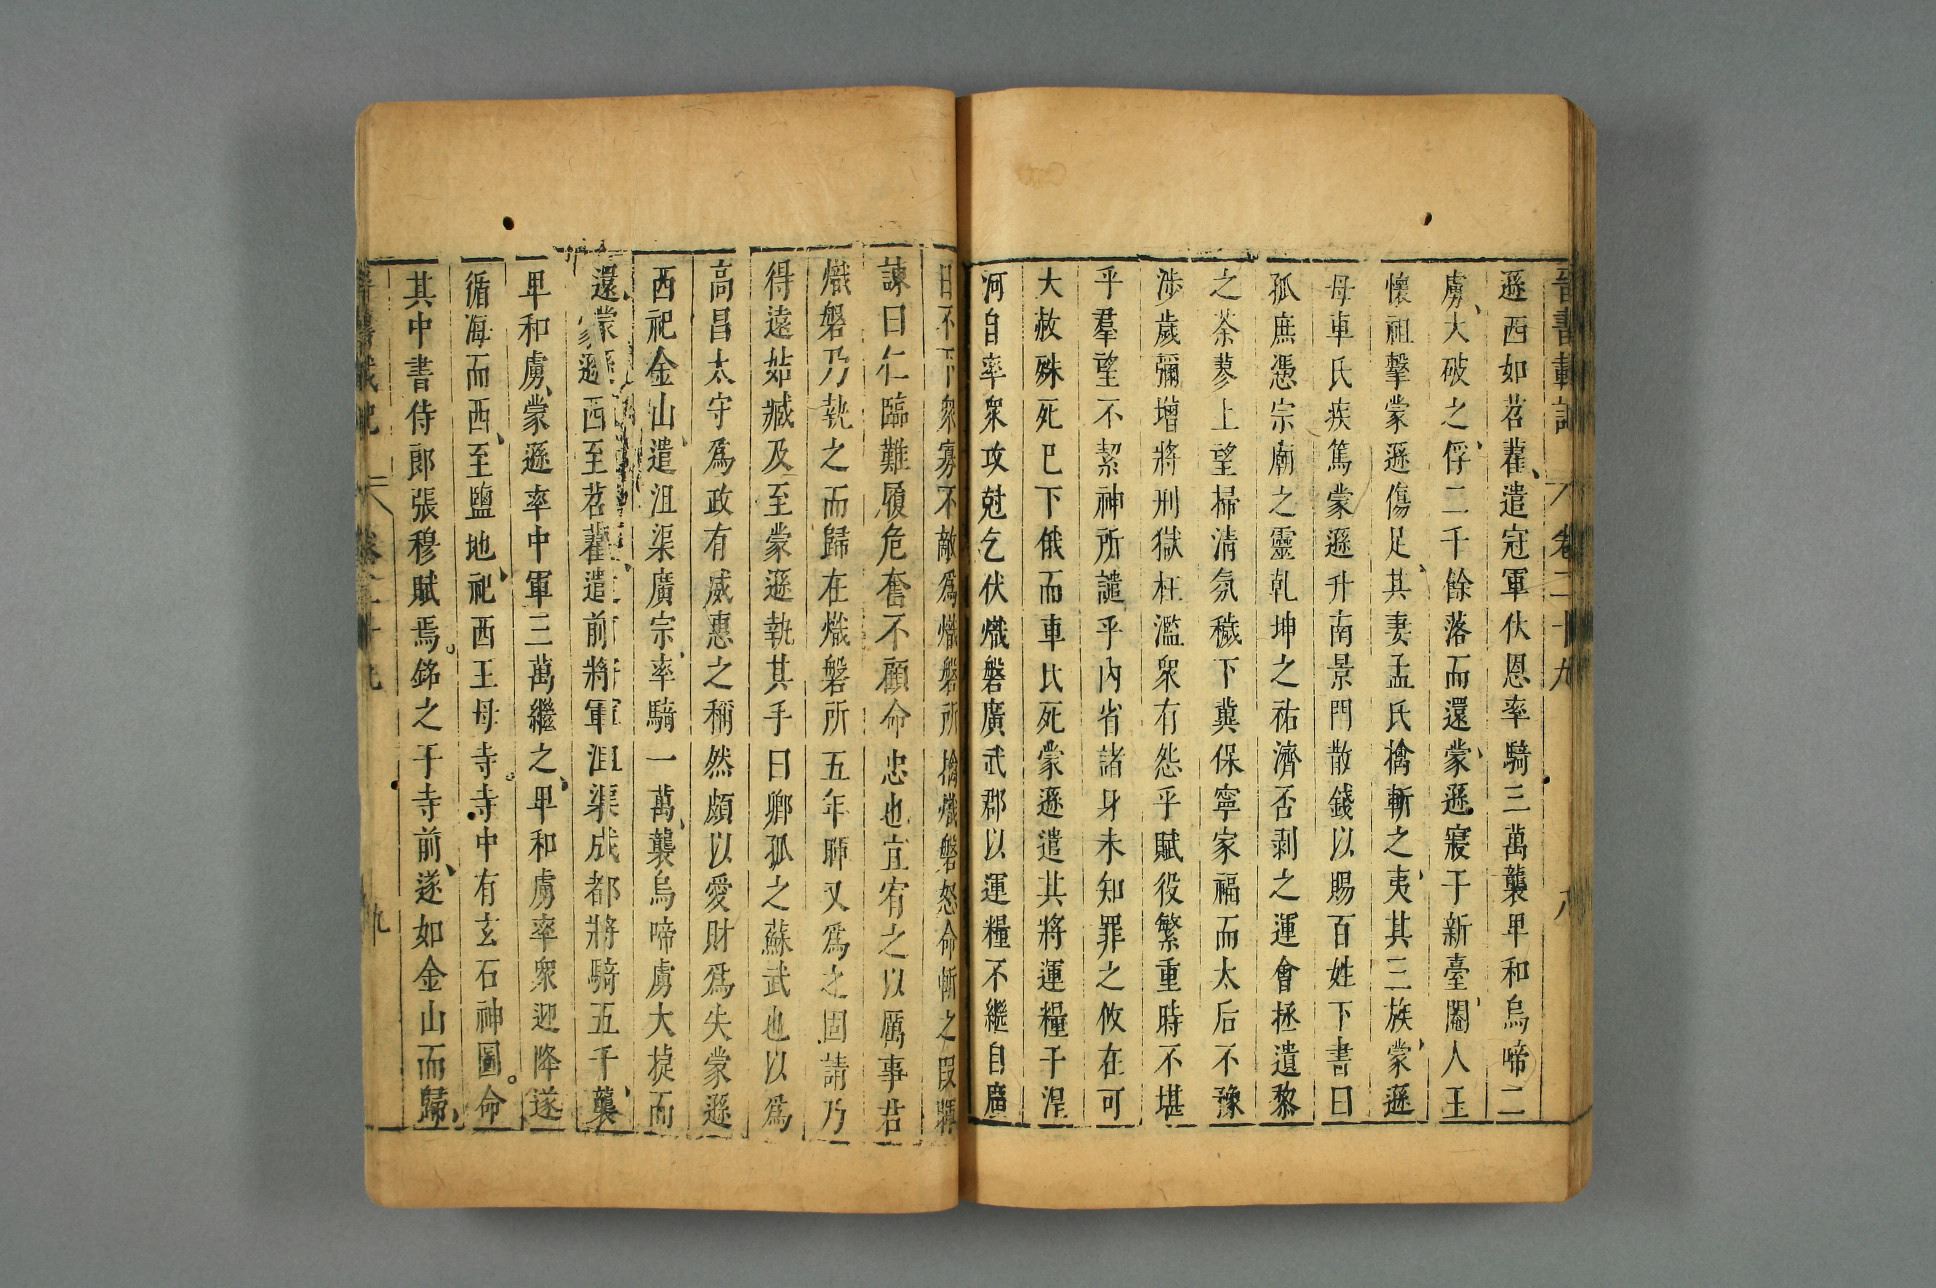 晉書載記 卷二十九 八
遜西如苕藋遣冠軍伏恩率騎三萬襲卑和烏啼二
虜大破之俘二千餘落而還蒙遜寢于新臺閹人王
懷祖擊蒙遜傷足其妻孟氏擒斬之夷其三族蒙遜
母車氏疾篤蒙遜升南景門散錢以賜百姓下書曰
孤庶憑宗廟之靈乾坤之祐濟否剥之運會拯遺黎
之荼蓼上望掃清氛穢下冀保寧家福而太后不豫
涉歲彌增將刑獄枉濫衆有怨乎賦役繁重時不堪
乎羣望不絜神所譴乎内省諸身未知罪之攸在可
大赦殊死已下俄而車氏死蒙遜遣其將運糧于湟
河自率衆攻尅乞伏熾磐廣武郡以運糧不繼自廣
曰不下衆寡不敵爲熾磐所擒熾磐怒命斬之叚暉
諫曰仁臨難履危奮不顧命忠也宜宥之以厲事君
熾磐乃執之而歸在熾磐所五年暉又爲之固請乃
得還姑臧及至蒙遜執其手曰卿孤之蘇武也以爲
高昌太守爲政有威惠之稱然頗以愛財爲失蒙遜
西祀金山遣沮渠廣宗率騎一萬襲烏啼虜大捷而
還蒙遜西至苕藋遣前將軍沮渠成都將騎五千襲
卑和虜蒙遜率中軍三萬繼之卑和虜率衆迎降遂
循海而西至鹽地祀西王母寺寺中有玄石神圖命
其中書侍郎張穆賦焉銘之于寺前遂如金山而歸
卷二十九 九